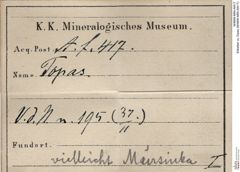 K. K. Mineralogisches Museum.
Acq. Post A. f. 417.
Name Topas
V. d. N n. 195 (37/11)
Fundort.
vielleicht Mursinka I